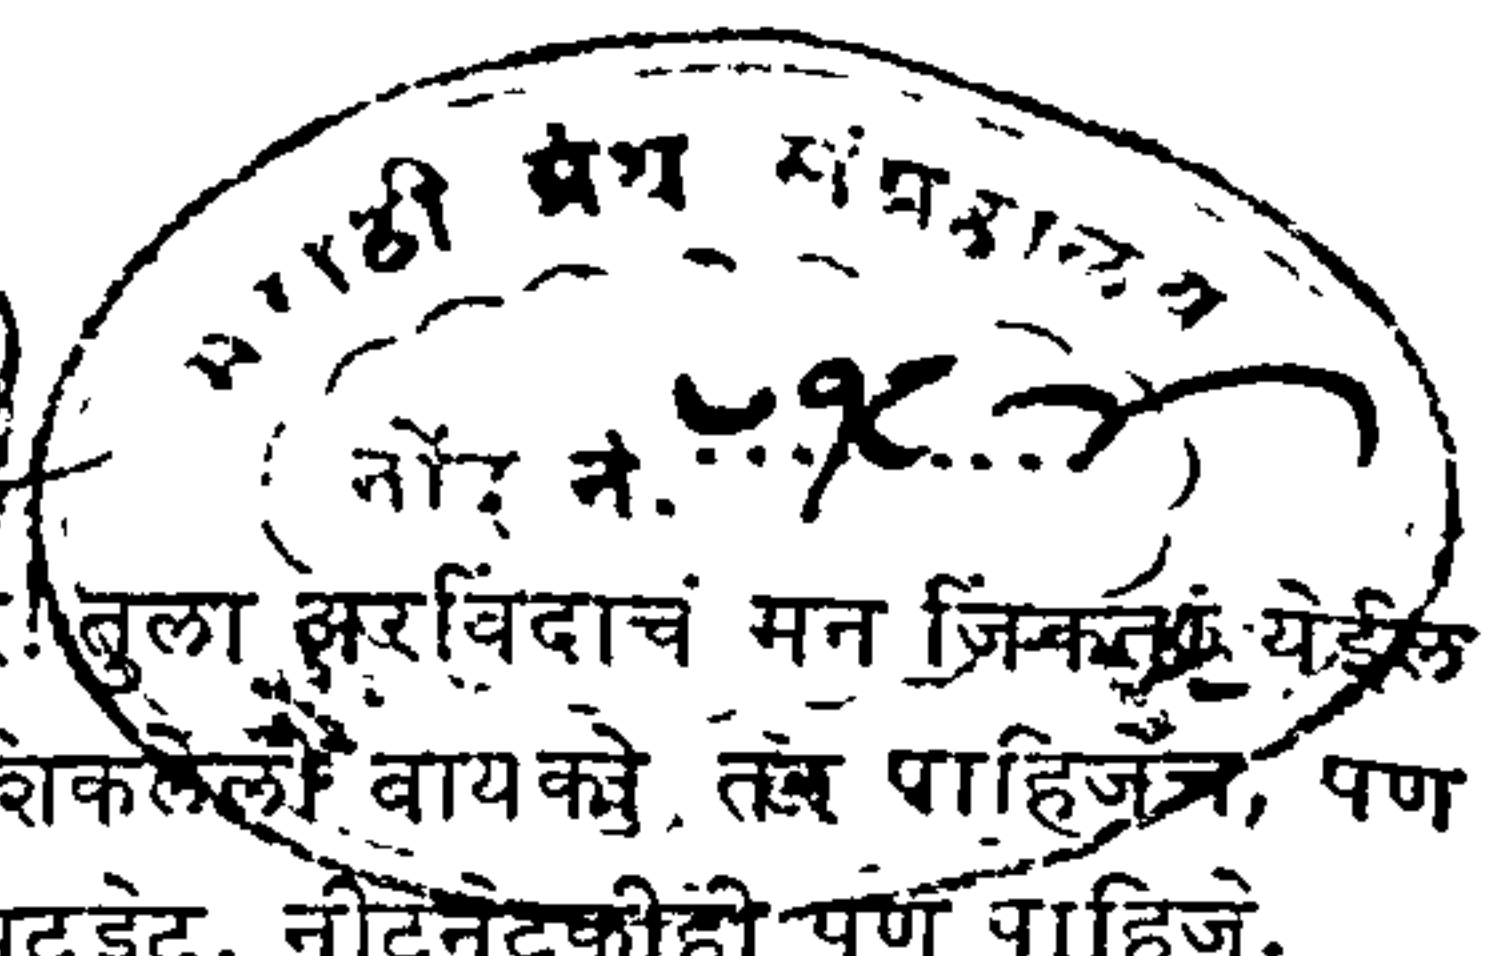 मराठी ग्रंथ संग्रहालय
नोंद नं.
तुला अरविंदाचं मन जिंकतां येईल
शिकलेली बायको तर पाहिजेच, पण
नीटनेटकीही पण पाहिजे.